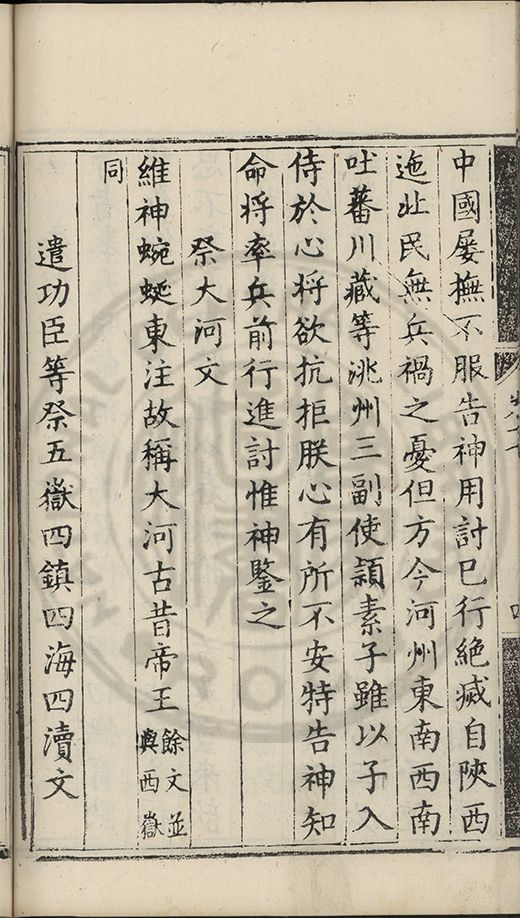 中國屢撫不服告神用討已行絶㓕自陝西
迤北民無兵禍之憂但方今河州東南西南
吐蕃川藏等洮州三副使頴素子雖以子入
侍於心將欲抗拒朕心有所不安特告神知
命將率兵前行進討惟神鑒之
祭大河文
維神蜿蜒東注故稱大河古昔帝王餘文並與西嶽
同
遣功臣等祭五嶽四鎮四海四瀆文